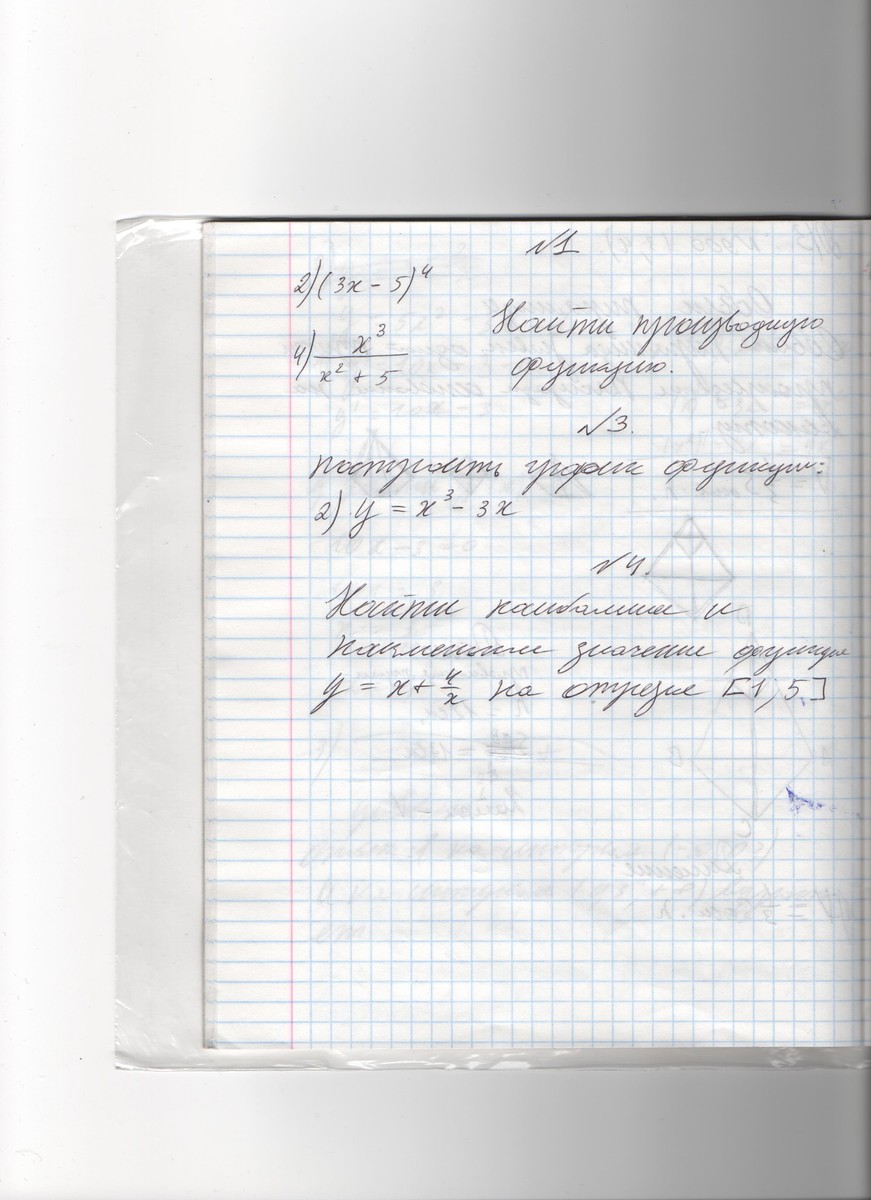 №1
2) (3x - 5)⁴
4) x³/(x² + 5)
Найти производную
функцию.
№3.
построить график функции:
2) y = x³ - 3x
№4.
Найти наибольшее и
наименьшее значение функции
y = x + 4/x на отрезке [1; 5]